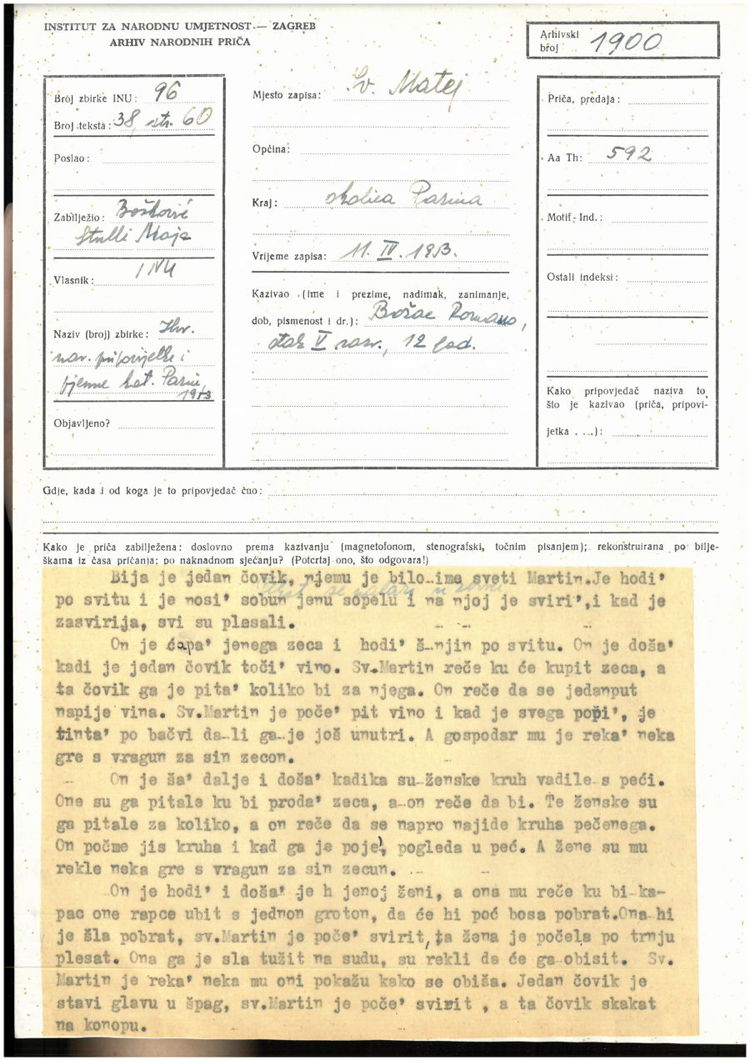 INSTITUT ZA NARODNU UMJETNOST — ZAGREB
ARHIV NARODNIH PRIČA
Arhivski broj 1900
Broj zbirke INU: 96
Broj teksta: 38, str. 60
Poslao:
Zabilježio: Bošković
Stulli Maja
Vlasnik: INU
Naziv (broj) zbirke: Hrv.
nar. pripovijetke i
pjesme kot. Pazin,
1953
Objavljeno?
Mjesto zapisa: Sv. Matej
Općina:
Kraj: okolica Pazina
Vrijeme zapisa: 11. IV. 1953.
Kazivao (ime i prezime, nadimak, zanimanje,
dob, pismenost i dr.): Božac Romano,
đak V razr., 12 god.
Priča, predaja:
Aa Th: 592
Motif - Ind.:
Ostali indeksi:
Kako pripovjedač naziva to,
što je kazivao (priča, pripovi-
jetka . . .):
Gdje, kada i od koga je to pripovjedač čuo:
Kako je priča zabilježena: doslovno prema kazivanju (magnetofonom, stenografski, točnim pisanjem); rekonstruirana po bilje-
škama iz časa pričanja; po naknadnom sjećanju? (Potcrtaj ono, što odgovara!)
Bija je jedan čovik, njemu je bilo ime sveti Martin. Je hodi'
po svitu i je nosi' sobun jenu sopelu i na njoj je sviri', i kad je
zasvirija, svi su plesali.
On je ćapa' jenega zeca i hodi' š njin po svitu. On je doša'
kadi je jedan čovik toči' vino. Sv.Martin reče ku će kupit zeca, a
ta čovik ga je pita' koliko bi za njega. On reče da se jedanput
napije vina. Sv.Martin je poče' pit vino i kad je svega popi', je
tinta' po bačvi da-li ga je još unutri. A gospodar mu je reka' neka
gre s vragun za sin zecon.
On je ša' dalje i doša' kadika su ženske kruh vadile s peći.
One su ga pitale ku bi proda' zeca, a on reče da bi. Te ženske su
ga pitale za koliko, a on reče da se napro najide kruha pečenega.
On počme jis kruha i kad ga je poje', pogleda u peć. A žene su mu
rekle neka gre s vragun za sin zecun.
On je hodi' i doša' je h jenoj ženi, a ona mu reče ku bi ka-
pac one rapce ubit s jednon groton, da će hi poć bosa pobrat. Ona hi
je šla pobrat, sv.Martin je poče' svirit, ta žena je počela po trnju
plesat. Ona ga je sla tužit na sudu, su rekli da će ga obisit. Sv.
Martin je reka' neka mu oni pokažu kako se obiša. Jedan čovik je
stavi glavu u špag, sv.Martin je poče' svirit , a ta čovik skakat
na konopu.